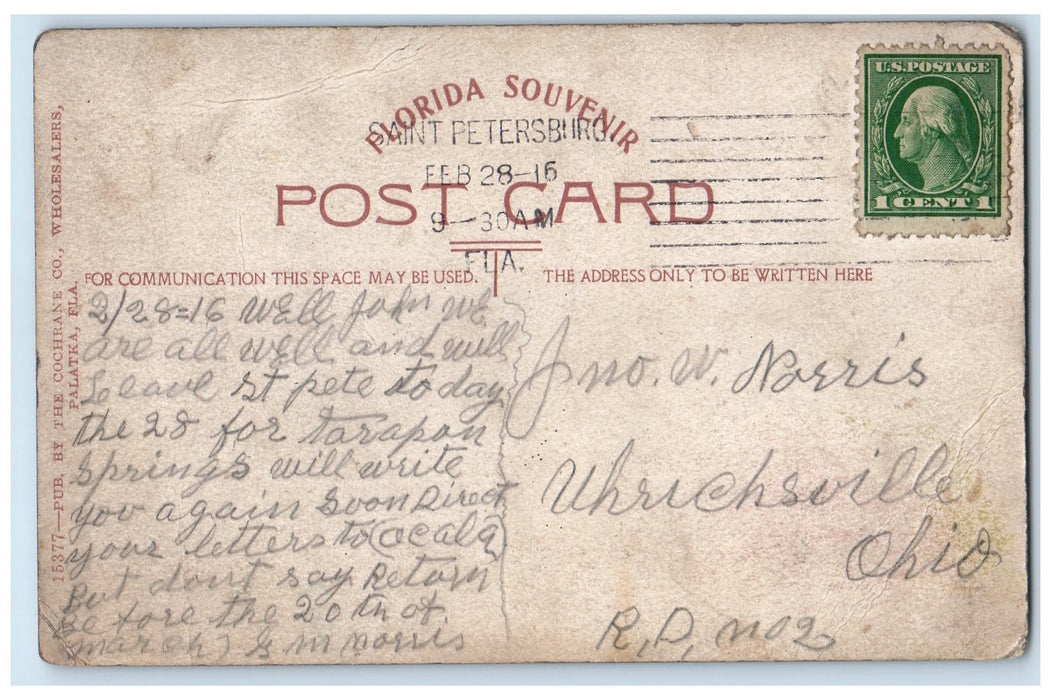 FLORIDA SOUVENIR
SAINT PETERSBURG
FEB 28-16
9-30AM
FLA.
POST CARD
U.S. POSTAGE
1 CENT 1
15377—PUB. BY THE COCHRANE CO., WHOLESALERS,
PALATKA, FLA.
FOR COMMUNICATION THIS SPACE MAY BE USED.
THE ADDRESS ONLY TO BE WRITTEN HERE
2/28=16 well John we
are all well and will
Leave St pete to day
the 28 for tarapon
springs will write
you again soon Direct
your letters to (ocala)
But dont say Return
Be fore the 20 th of
march) G m norris
Jno. W. Norris
Uhrichsville
Ohio
R, D, no 2